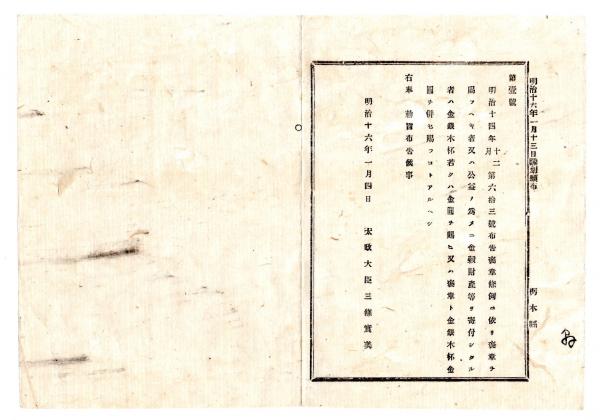 明治十六年一月十三日翻刻頒布
栃木縣
第壹號
明治十四年十二月第六拾三號布告褒章條例ニ依リ褒章ヲ
賜フヘキ者又ハ公益ノ爲メニ金穀財產等ヲ寄付シタル
者ハ金銀木杯若クハ金圓ヲ賜ヒ又ハ褒章ト金銀木杯金
圓ヲ併セ賜フコトアルヘシ
右奉 勅旨布告候事
明治十六年一月四日
太政大臣三條實美